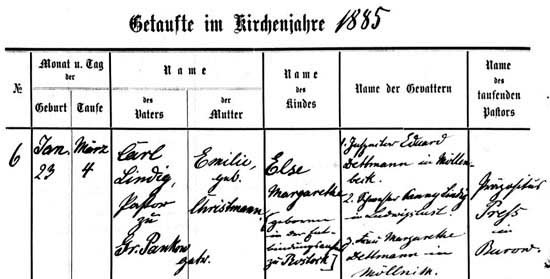 Getaufte im Kirchenjahre 1885
№
Monat u. Tag
der
Geburt
Taufe
Name
des
Vaters
der
Mutter
Name
des
Kindes
Name der Gevattern
Name
des
taufenden
Pastors
6
Jan.
23
März
4
Carl
Lindig,
Pastor
zu
Gr. Pankow
Emilie,
geb.
Christmann
Else
Margarethe
[geboren
in der Ent-
bindungs
zu Rostock]
1. Eduard
Dettmann in Möllen-
beck.
2. Schwester Fanny Lindig
in Ludwigslust
3. Frau Margarethe
Dettmann in
Möllnitz.
Präpositus
in
Burow.